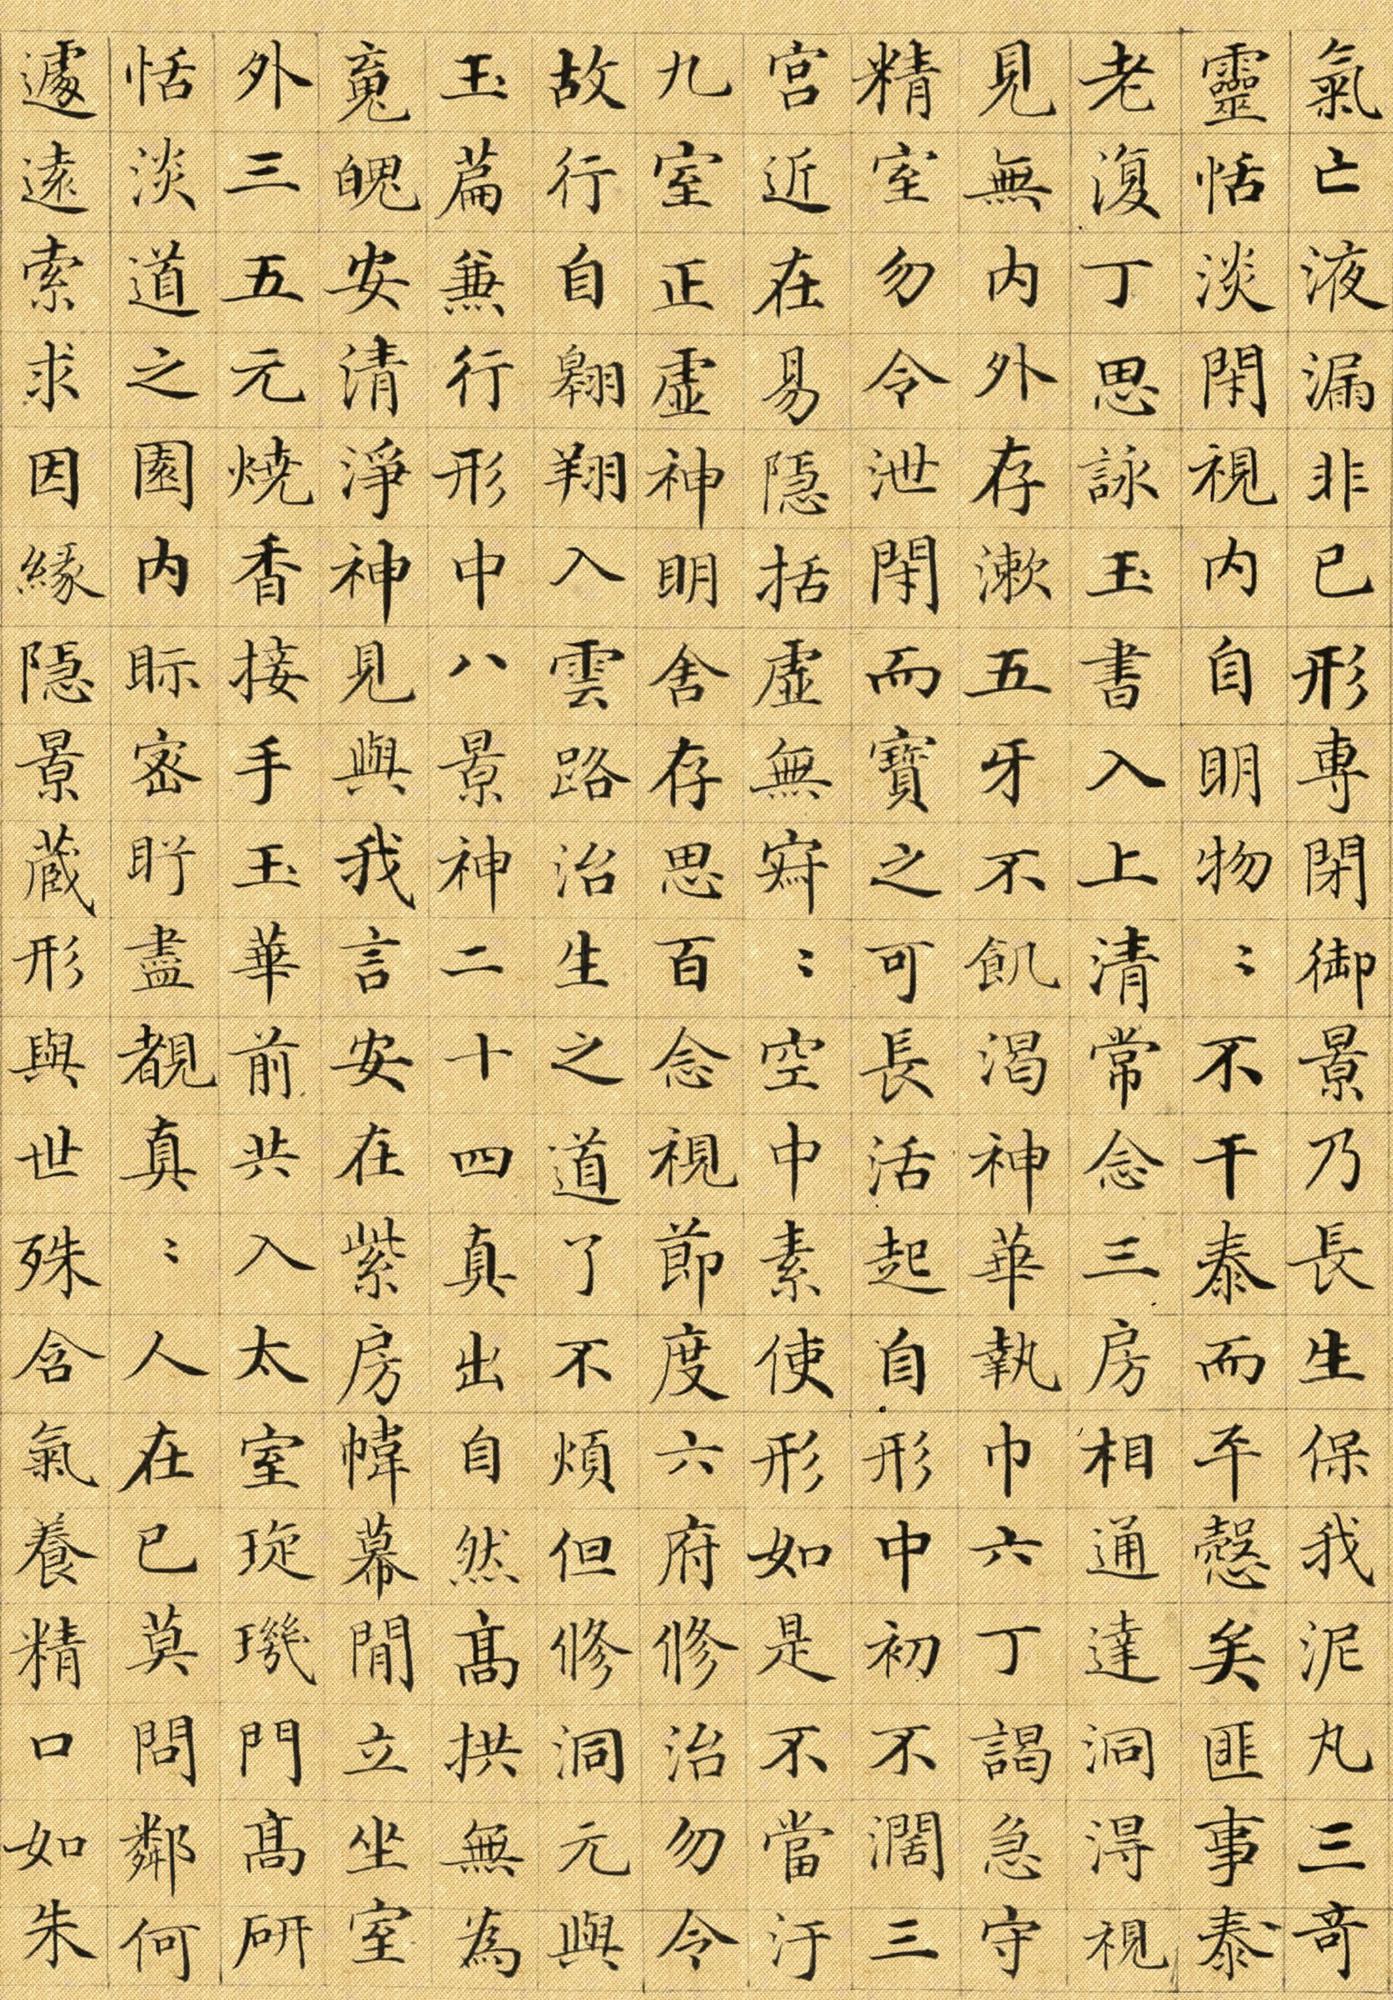 氣亡液漏非已形專閉御景乃長生保我泥丸三奇
靈恬淡閑視内自眀物〻不干泰而平慤矣匪事泰
老復丁思詠玉書入上清常念三房相通達洞得視
見無内外存漱五牙不飢渴神華執巾六丁謁急守
精室勿令泄閇而寶之可長活起自形中初不濶三
宮近在易隱括虛無寂〻空中素使形如是不當汙
九室正虛神眀舍存思百念視節度六府修治勿令
故行自翱翔入雲路治生之道了不煩但修洞元與
玉篇兼行形中八景神二十四真出自然髙拱無為
魂魄安清淨神見與我言安在紫房幃幕閒立坐室
外三五元燒香接手玉華前共入太室琁璣門髙研
恬淡道之園内眎密盻盡覩真〻人在已莫問鄰何
遽遠索求因緣隱景蔵形與世殊含氣養精口如朱